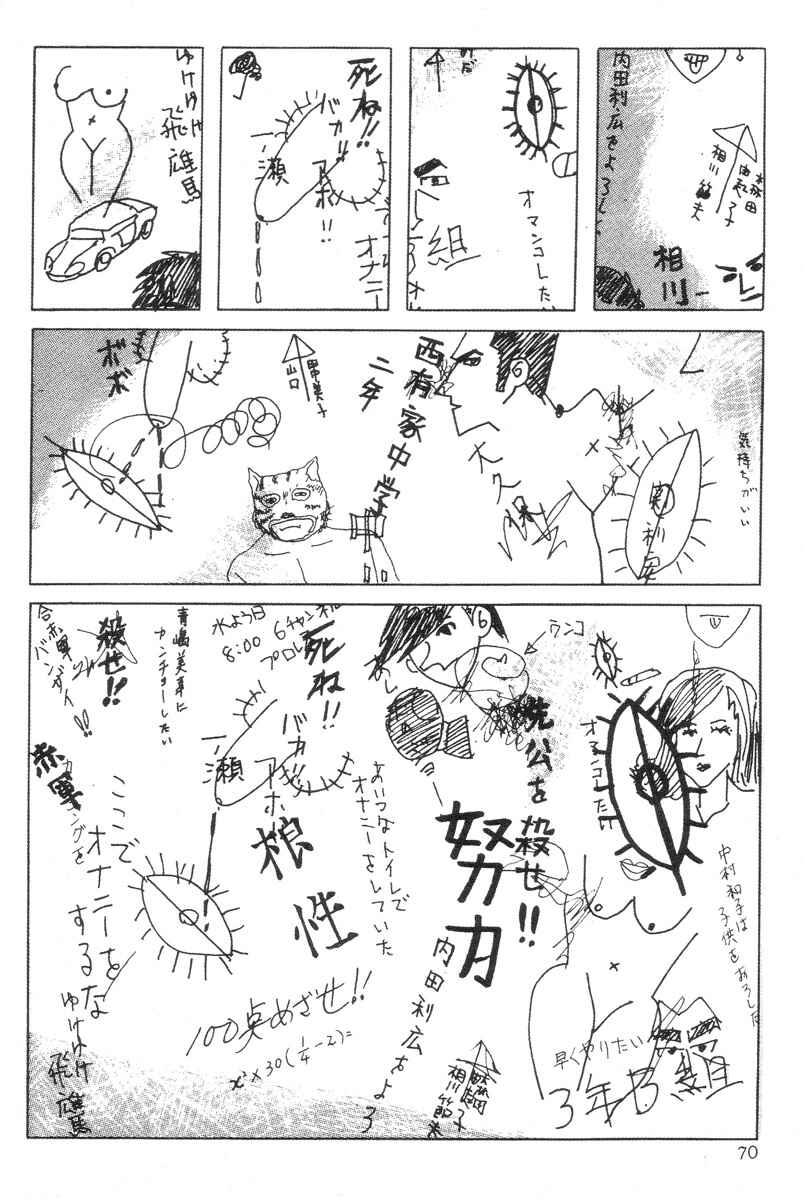 内田利広をよろし
相川節夫
相川
オマンコしたい
組
死ね!!
バカ!!
アホ!!
一ノ瀬
オナニー
ゆけゆけ
飛雄馬
気持ちがいい
大久保
西有家中学
二年
山口
ボボ
中村和子は
子供をおろした
オマンコしたい
早くやりたい
3年B組
ウンコ
先公を殺せ!!
努力
内田利広をよろ
相川節夫
あいつなトイレで
オナニーをしていた
死ね!!
バカ!!
アホ
一ノ瀬
根性
100点めざせ!!
x²×30(1/4-2)=
水よう日
8:00
6チャンネル
プロレ
青嶋美革に
カンチョーしたい
殺せ!!
ここで
オナニーを
するな
赤軍
ゆけゆけ
飛雄馬
70